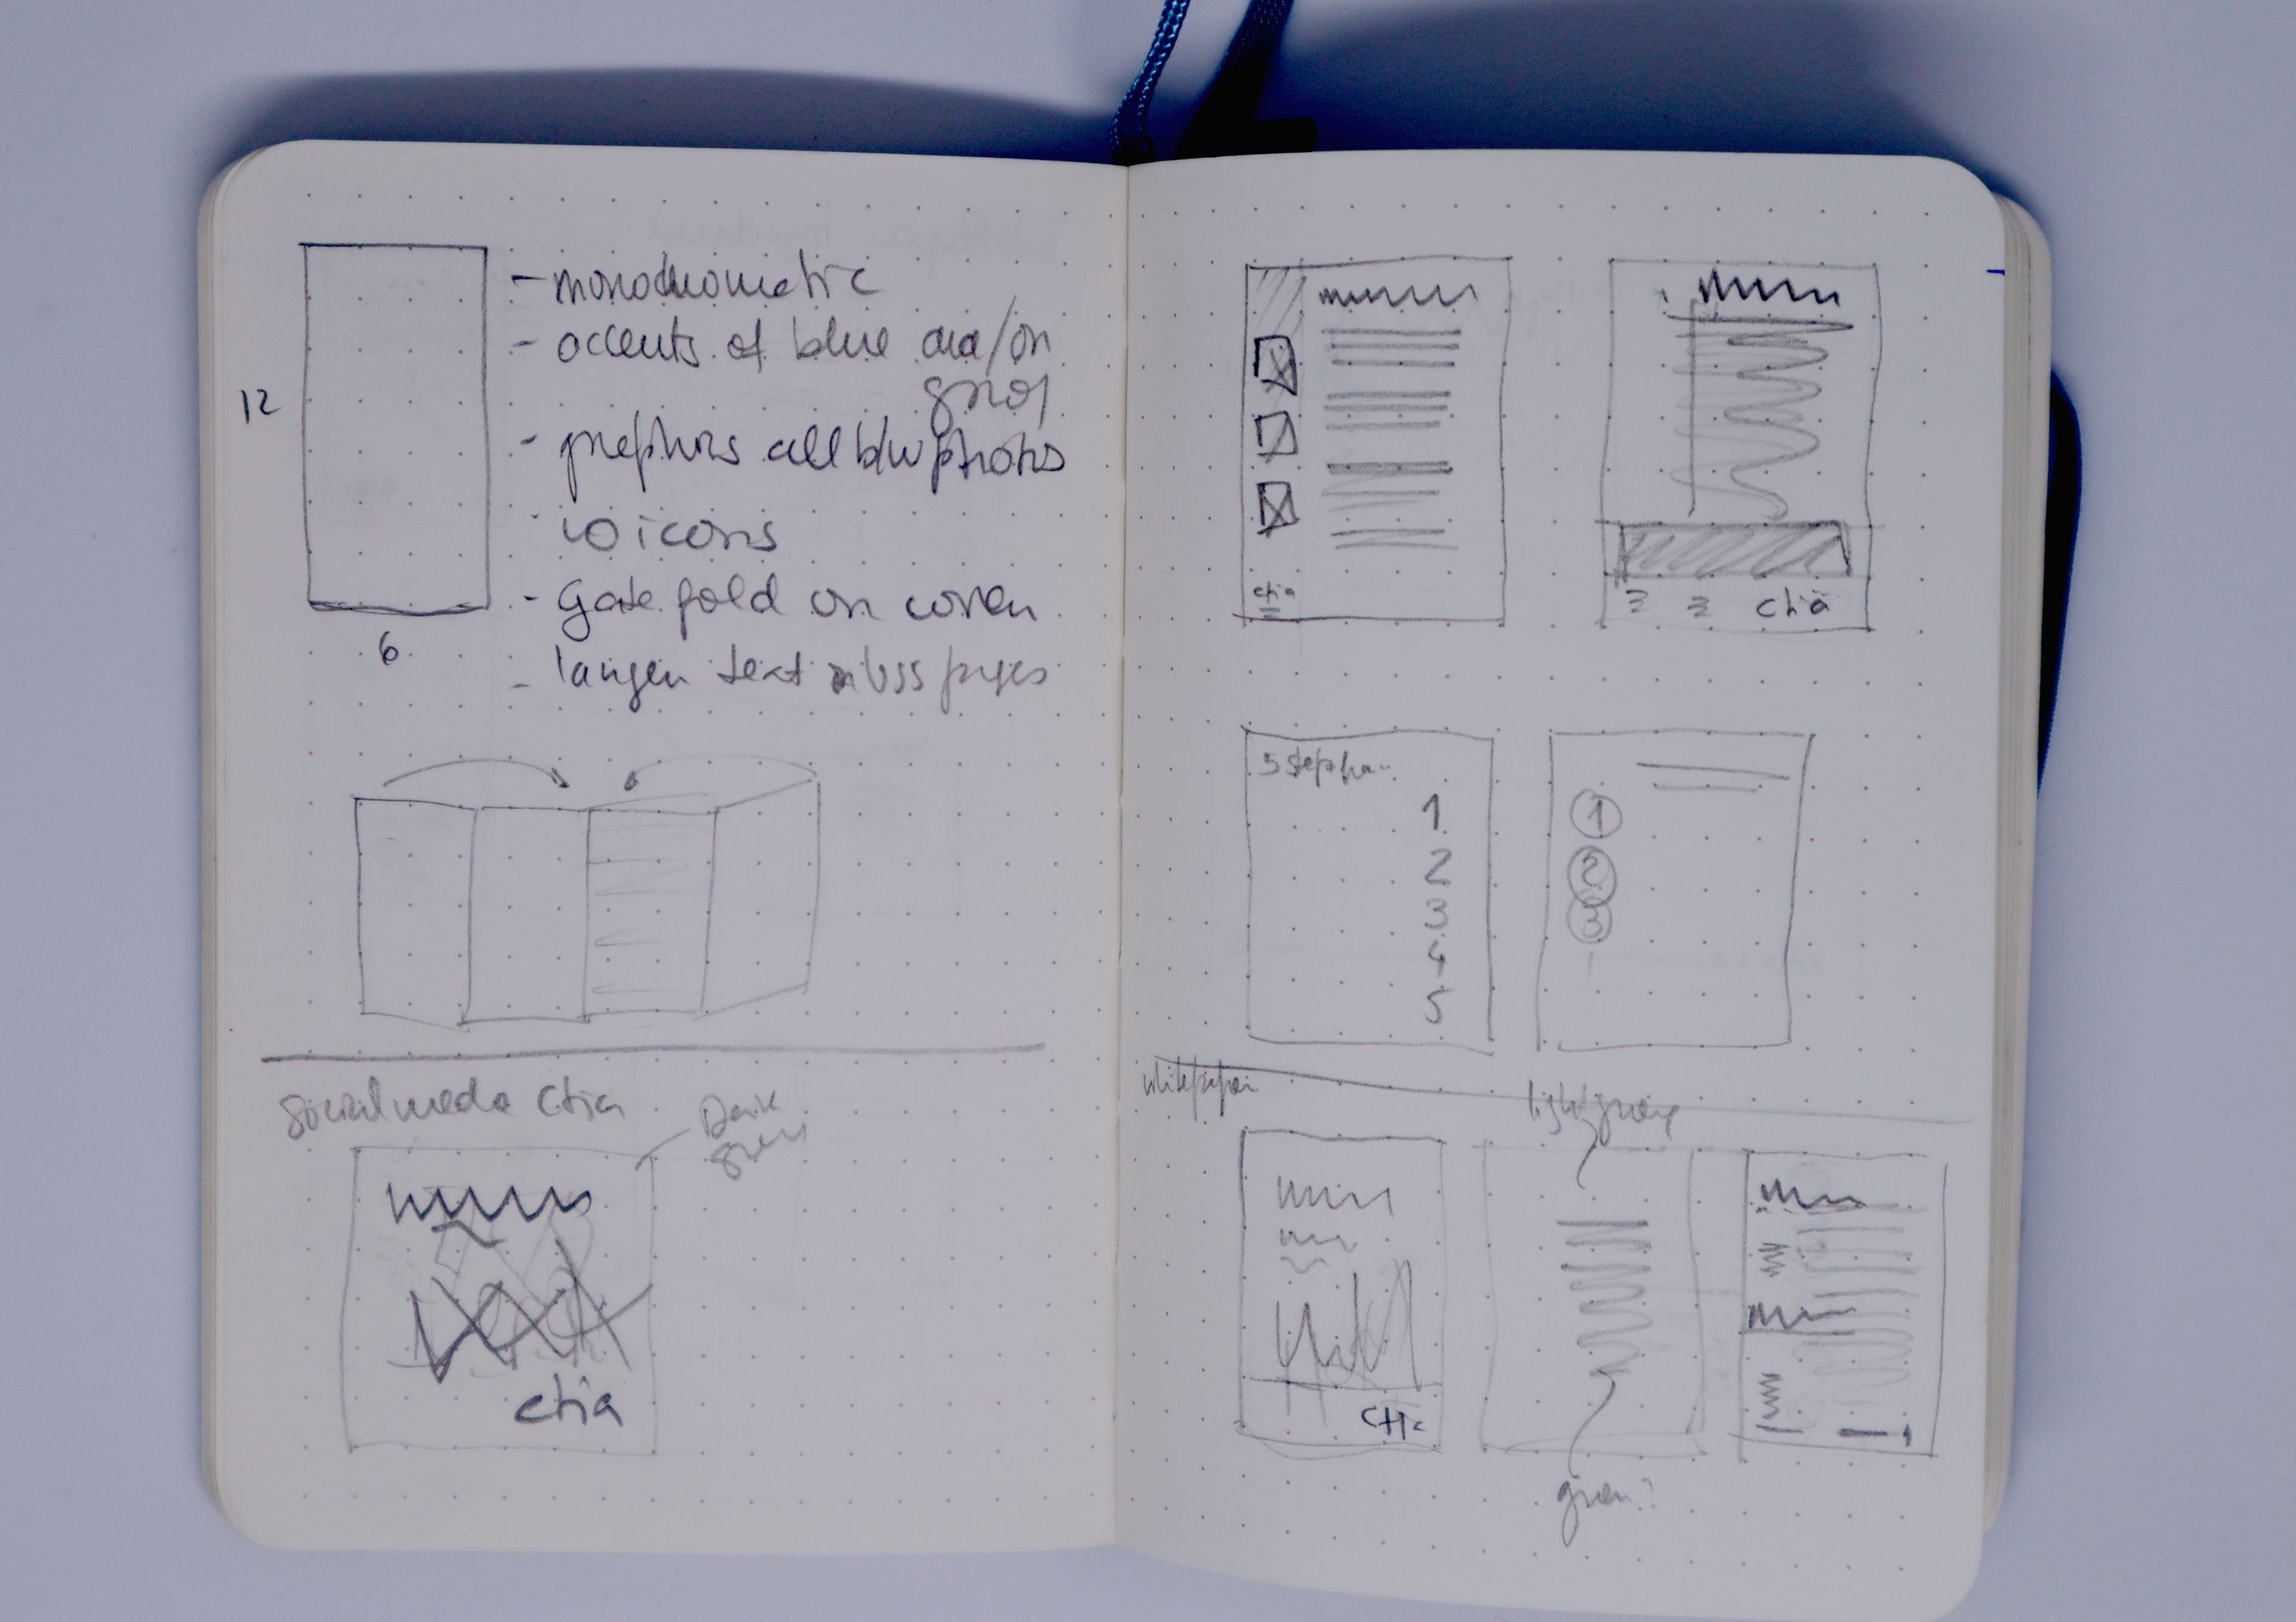 12
6
- monochromatic
- accents of blue and/or
gray
- graphics all b/w photos
- icons
- Gate fold on cover
- larger text less pages
social media ctia
Dark
green
ctia
ctia
ctia
5 step
1
2
3
4
5
1
2
3
whitepaper
light gray
green?